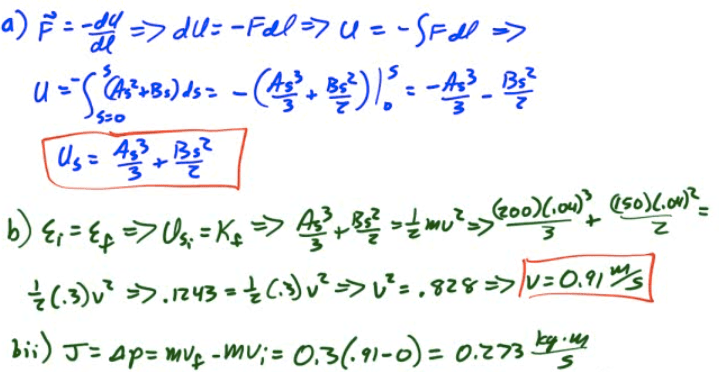 a) F⃗ = -dU/dl => dU = -Fdl => U = -∫F dl =>
U = -∫_{s=0}^{s} (As²+Bs) ds = -(As³/3 + Bs²/2)|₀ˢ = -As³/3 - Bs²/2
Us = As³/3 + Bs²/2
b) Ei = Ef => Usi = Kf => As³/3 + Bs²/2 = ½mv² => (200)(.04)³/3 + (150)(.04)²/2 =
½(.3)v² => .1243 = ½(.3)v² => v² = .828 => V = 0.91 m/s
bii) J = Δp = mvf - mvi = 0.3(.91-0) = 0.273 kg·m/s